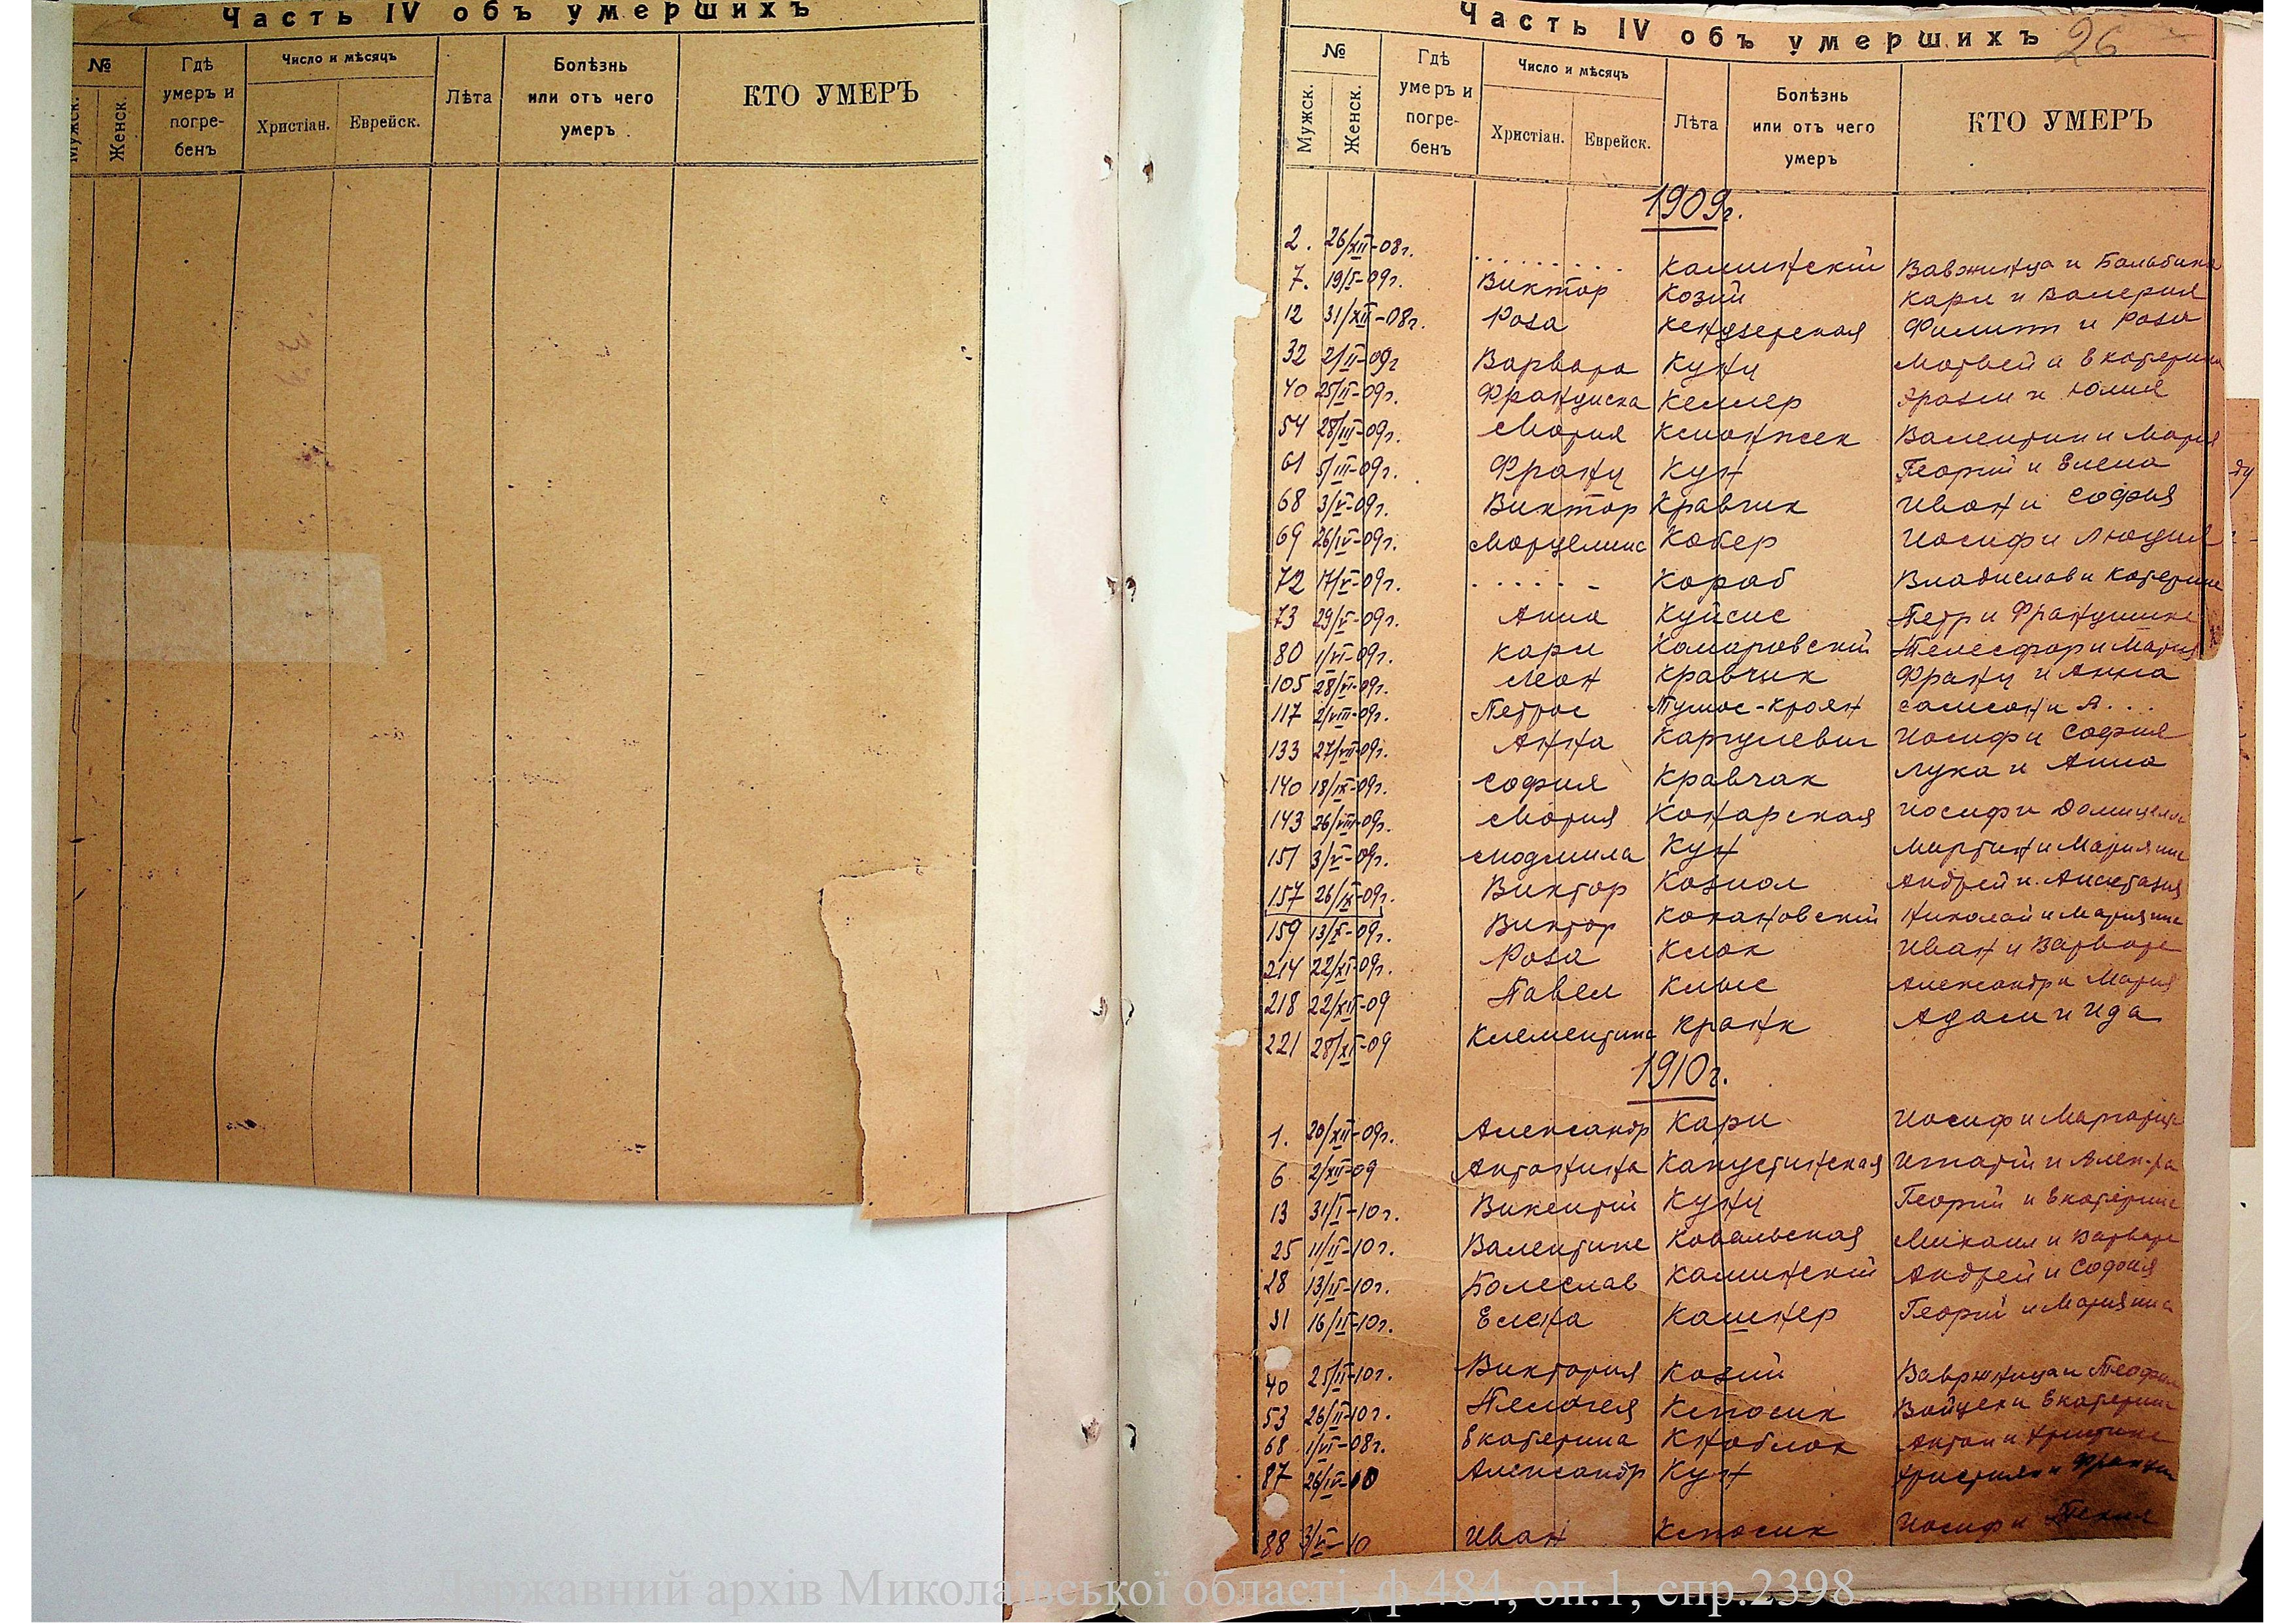 Часть IV объ умершихъ
№
Мужск.
Женск.
Гдѣ умеръ и погребенъ
Число и мѣсяцъ
Христіан.
Еврейск.
Лѣта
Болѣзнь или отъ чего умеръ
КТО УМЕРЪ
Часть IV объ умершихъ 26
№
Мужск.
Женск.
Гдѣ умеръ и погребенъ
Число и мѣсяцъ
Христіан.
Еврейск.
Лѣта
Болѣзнь или отъ чего умеръ
КТО УМЕРЪ
1909г.
2. 26/XII-08г. ........ Каминский Вавжинца и Бальбина
7. 19/I-09г. Виктор Козий Карл и Валерия
12 31/XII-08г. Роза Кендзерская Филипп и Роза
32 2/II-09г Варвара Кунц Матвей и Екатерина
40 25/II-09г. Франциска Келлер Эразм и Юлия
54 28/III-09г. Мария Валентин и Мария
61 5/III-09г. Франц Кун Георгий и Елена
68 3/V-09г. Виктор Кравчик Иван и София
69 26/IV-09г. Кобер Иосиф и Люция
72 17/V-09г. ...... Караб Владислав и Катерина
73 29/V-09г. Анна Куйсис Петр и
80 1/VI-09г. Карл Комаровский Телесфор и Мария
105 28/VI-09г. Леон Кравчик Франц и Анна
117 2/VIII-09г. Петрос Самсон и А...
133 27/VII-09г. Анна Каргулевич Иосиф и София
140 18/IX-09г. София Кравчак Лука и Анна
143 26/VIII-09г. Мария Конарская Иосиф и Домицелла
151 3/V-09г. Людмила Кун Мартин и Марианна
157 26/IX-09г. Виктор Козиол Андрей и Анастазия
159 13/X-09г. Виктор Кохановский Николай и Марианна
214 22/XI-09г. Роза Клок Иван и Варвара
218 22/XII-09 Павел Клыс Александр и Мария
221 28/XI-09 Клементина Кранк Адам и Ида
1910г.
1. 20/XII-09г. Александр Карл Иосиф и Маргарита
6 2/XII-09 Антонина Капустинская Игнатий и Алек-ра
13 31/I-10г. Викентий Кунц Георгий и Екатерина
25 11/II-10г. Валентина Ковальская Михаил и Варвара
28 13/II-10г. Болеслав Каминский Андрей и София
31 16/II-10г. Елена Кашнер Георгий и Марианна
40 25/II-10г. Виктория Козий Вавржинца и Теофила
53 26/II-10г. Пелагея Клосик Войцех и Екатерина
68 1/VI-08г. Екатерина Кноблок Антон и Кристина
87 26/IV-10 Александр Кун Христиан и
88 3/V-10 Иван Клосик Иосиф и Текля
Державний архів Миколаївської області, ф.484, оп.1, спр.2398